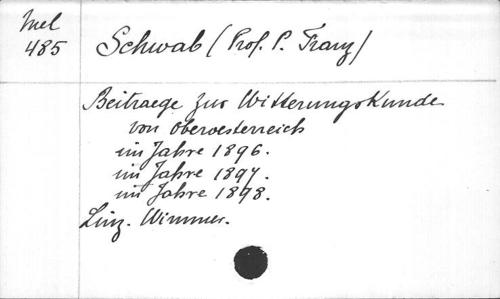 Mel
485
Schwab (Prof. P. Franz)
Beitraege zur Witterungskunde
von Oberoesterreich
im Jahre 1896.
im Jahre 1897.
im Jahre 1898.
Linz. Wimmer.